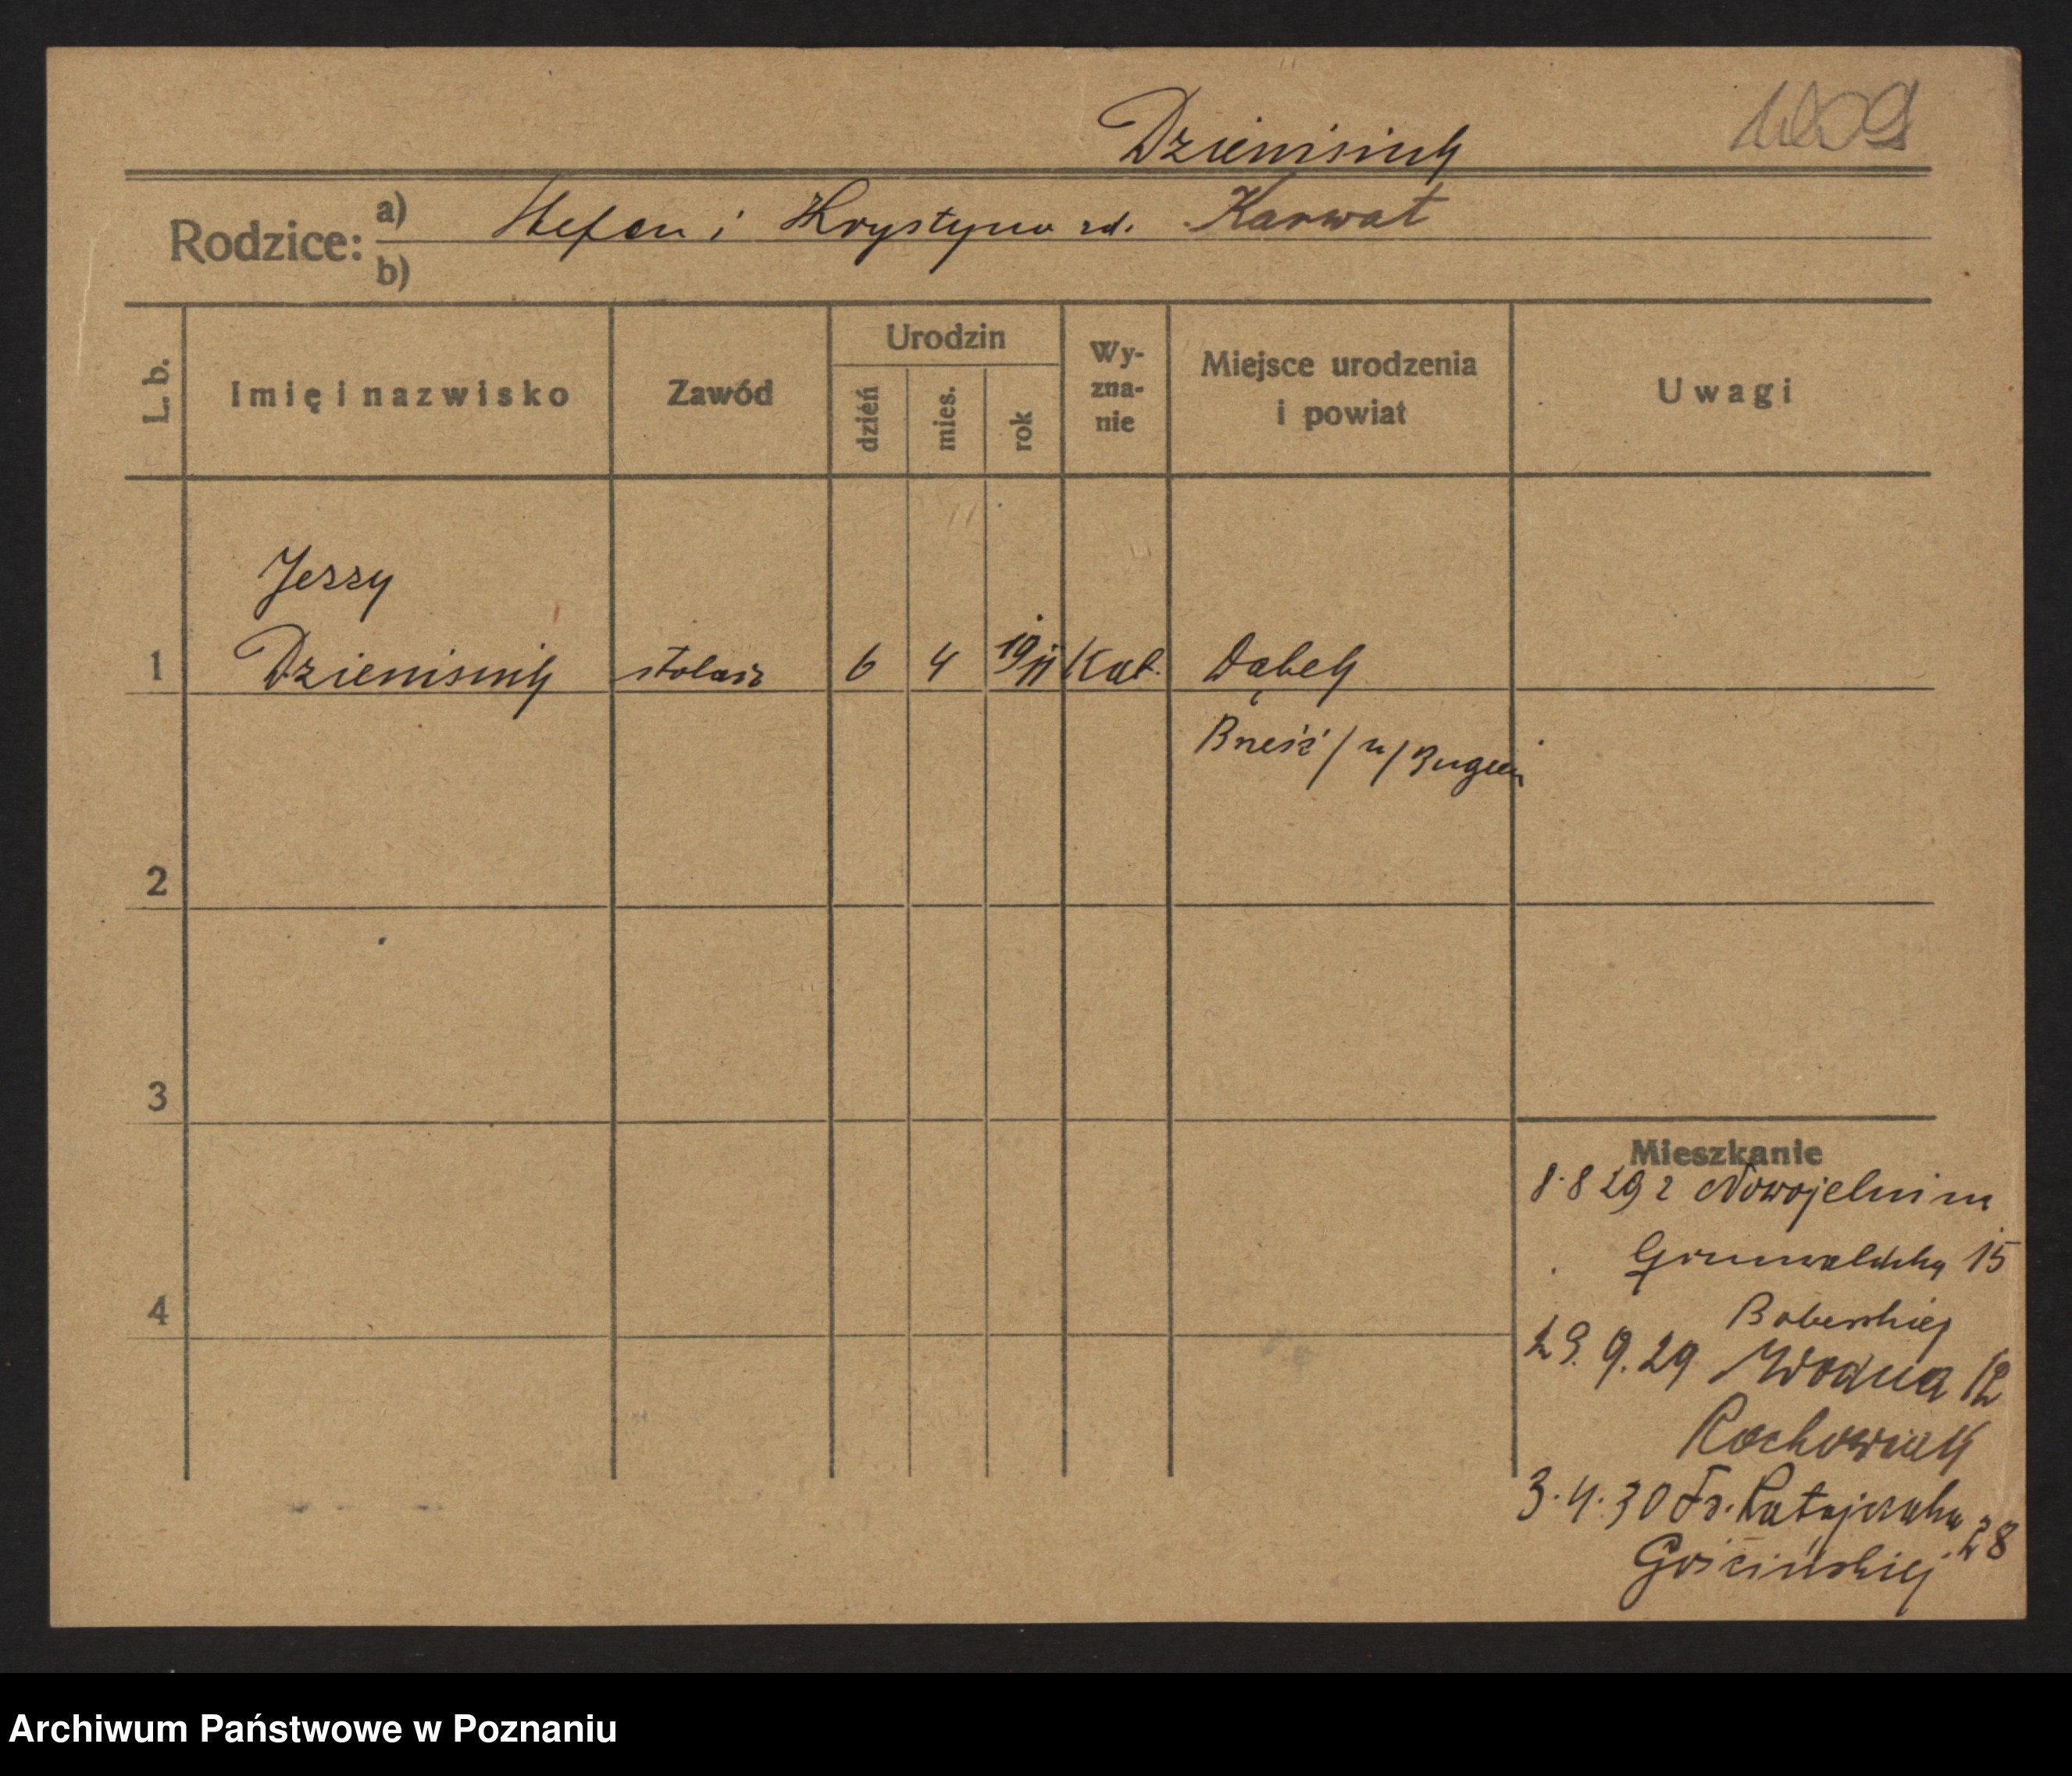 Dzienisiuk
1209
Rodzice: a) Stefan i Krystyna zd. Karwat
b)
L. b.
Imię i nazwisko
Zawód
Urodzin
dzień
mies.
rok
Wy-
zna-
nie
Miejsce urodzenia
i powiat
Uwagi
Jerzy
1 Dzienisiuk stolarz 6 4 19/11 Kat. Dąbek
Brześć /n/ Bugiem
2
3
4
Mieszkanie
8.8 29 z Nowojelnina
Grunwaldzka 15
Boberskiej
23.9.29 Wodna 12
Rochowiak
3.4.30 Fr. Ratajczaka 28
Gościńskiej
Archiwum Państwowe w Poznaniu